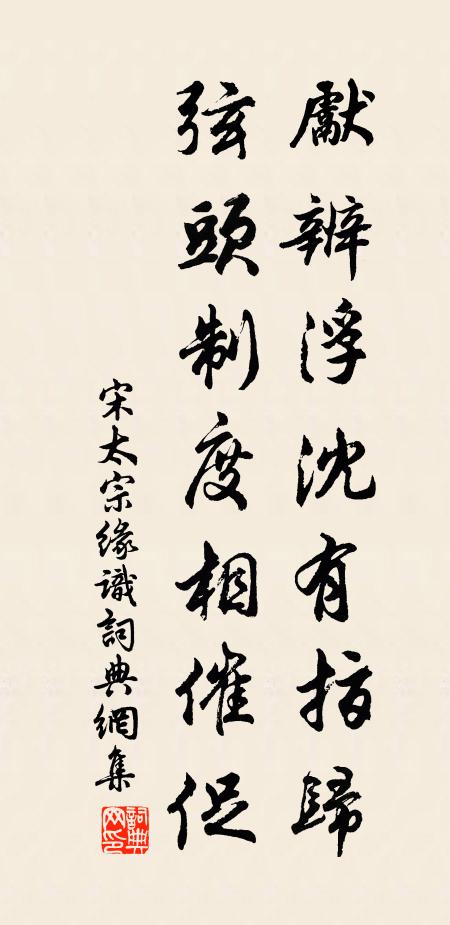 獻辨浮沈有指歸
弦頭制度相催促
宋太宗緣識詞典網集
詞典网印